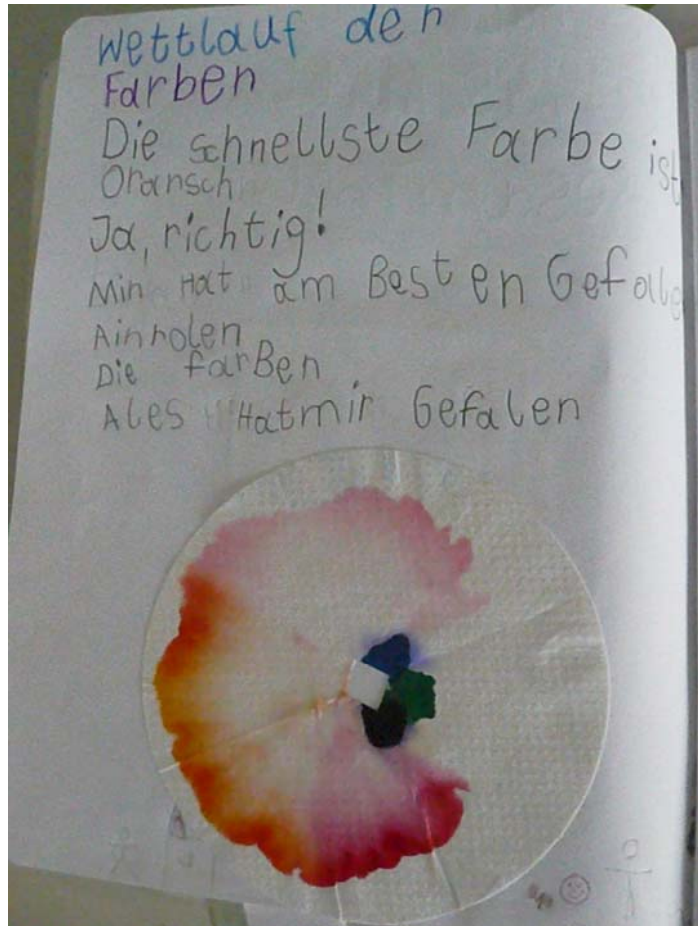 Wettlauf der
Farben
Die schnellste Farbe ist
Oransch
Ja, richtig!
Min Hat am Besten Gefale
Ainholen
Die farBen
Ales Hatmir Gefalen